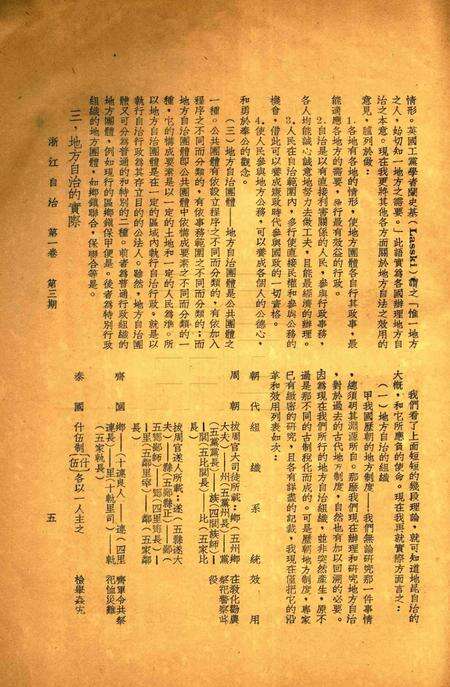 情形。英國工黨學者蘭史基(Lasski)謂之「惟一地方
之人，始切知一地方之需要。」此語實為各國辦理地方自
治之本意。現在我更將其他各方面關於地方自治之效用的
意見，臚列於後：
1. 各地有各地的情形，使地方團體各自行其政事，最
能適應各地方的需要，多行最有效益的行政。
2. 自治是以有直接利害關係的人民，參與行政事務，
各人均能誠心誠意地努力去做工夫，且能最經濟的辦理。
3. 人民在自治範圍內，多行使直接民權和參與公務的
機會，借此可以養成憲政時代參與國政的一切資格。
4. 使人民參與地方公務，可以養成各個人的公德心，
和勇於奉公的觀念。
(三)地方自治團體——地方自治團體是公共團體之
一種。公共團體有依設立程序之不同而分類的，有依加入
程序之不同而分類的，有依事務範圍之不同而分類的；而
地方自治團體即公共團體中依構成要素之不同而分類的一
種，它的構成要素是以一定的土地和一定的人民為準。所
以地方自治團體是在一定的區域內執行自治行政，就是以
執行自治行政為其存立目的的公法人。雖然，地方自治團
體又可分為普通的和特別的二種。前者為普通行政組織的
地方團體，例如現行的區鄉鎮保甲便是。後者為特別行政
組織的地方團體，如鄉鎮聯合，保聯合等是。
三，地方自治的實際
我們看了上面短短的幾段理論，就可知道地昆自治的
大概，和它所應負的使命。現在我再就實際方面言之：
(一)地方自治的組織
甲我國歷朝的地方制度——我們無論研究那一件事情
，總須明其淵源所自。那麼我們現在辦理和研究地方自治
，對於過去的古代地方制度，自然也有加以回溯的必要。
因為現在我們所行的地方自治組織，並非突然產生，原不
過是那不同的古制蛻化而成的。可是歷朝地方制度，專家
已有縝密的研究，且各有詳盡的記載，我現在僅把它的沿
革和效用列表如次：
朝代 組織系統 效用
周朝 按周官大司徒所載：鄉(五州鄉 在敎化勸農
大夫)——州(五黨州長)——黨 祭祀警察師
(五黨黨長)——族(四閭族師) 役
——閭(五比閭長)——比(五家比
長)
按周官遂人所載：遂(五縣遂大
夫)——縣(五鄙縣正)——鄙(
五酇鄙師)——酇(四里酇長)
——里(五鄰里宰)——鄰(五家鄰
長)
齊國 鄉——(十連良人)——連(四里 齊軍令共祭
連長)——里(十軌里司)——軌 祀恤災難
(五家軌長)
秦國 什伍制(什伍)各以一人主之 檢舉姦宄
浙江自治 第一卷 第三期 五